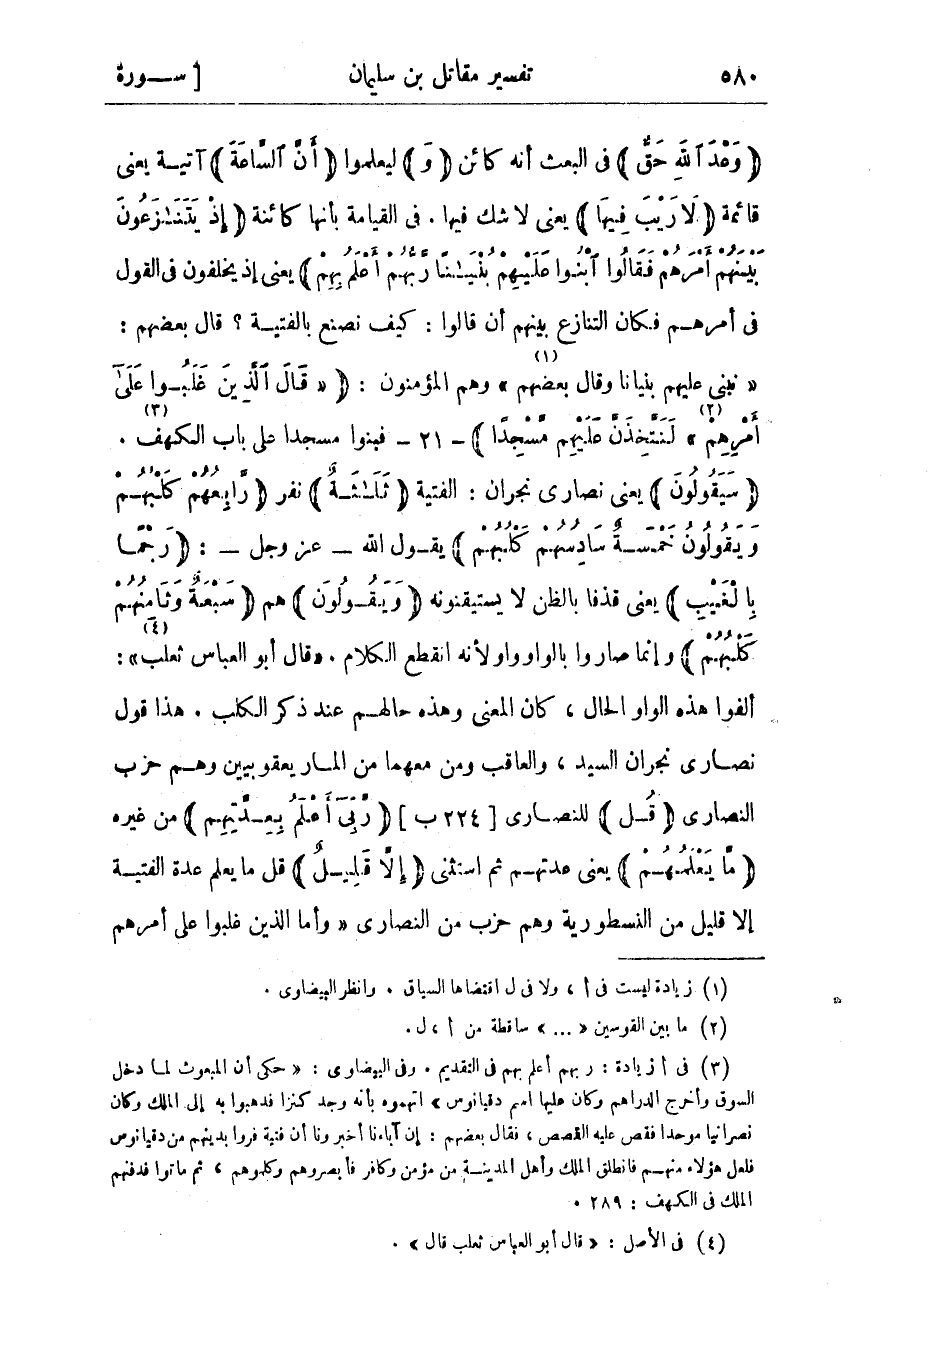 ٥٨٠ تفسير مقاتل بن سليمان [ ســورة
﴿ وَعْدَ ٱللَّهِ حَقٌّ ﴾ فى البعث أنه كائن ﴿ وَ ﴾ ليعلموا ﴿ أَنَّ ٱلسَّاعَةَ ﴾ آتيـة يعنى
قائمة ﴿ لَا رَيْبَ فِيهَا ﴾ يعنى لا شك فيها . فى القيامة بأنها كائنة ﴿ إِذْ يَتَنَـٰزَعُونَ
بَيْنَهُمْ أَمْرَهُمْ فَقَالُوا ٱبْنُوا عَلَيْهِمْ بُنْيَـٰنًا رَّبُّهُمْ أَعْلَمُ بِهِمْ ﴾ يعنى إذ يختلفون فى القول
فى أمرهـم فكان التنازع بينهم أن قالوا : كيف نصنع بالفتيـة ؟ قال بعضهم :
« نبنى عليهم بنيانا وقال بعضهم »(١) وهم المؤمنون : ﴿ « قَالَ ٱلَّذِينَ غَلَبُـوا عَلَىٰٓ
أَمْرِهِمْ »(٢) لَنَتَّخِذَنَّ عَلَيْهِم مَّسْجِدًا ﴾(٣) ـ ٢١ ـ فبنوا مسجدا على باب الكهف .
﴿ سَيَقُولُونَ ﴾ يعنى نصارى نجران : الفتية ﴿ ثَلَـٰثَـةٌ ﴾ نفر ﴿ رَّابِعُهُمْ كَلْبُهُـمْ
وَيَقُولُونَ خَمْسَـةٌ سَادِسُهُمْ كَلْبُهُمْ ﴾ يقـول الله ــ عز وجل ــ : ﴿ رَجْمًـا
بِالْغَيْبِ ﴾ يعنى قذفا بالظن لا يستيقنونه ﴿ وَيَقُـولُونَ ﴾ هم ﴿ سَبْعَةٌ وَثَامِنُهُمْ
كَلْبُهُمْ ﴾ وإنما صاروا بالواو واو لأنه انقطع الكلام . «قال أبو العباس ثعلب»(٤) :
ألفوا هذه الواو الحال ، كان المعنى وهذه حالهـم عند ذكر الكلب . هذا قول
نصـارى نجران السيد ، والعاقب ومن معهما من المار يعقوبيين وهـم حزب
النصارى ﴿ قُـل ﴾ للنصـارى [ ٢٢٤ ب ] ﴿ رَّبِّىٓ أَعْلَمُ بِعِـدَّتِهِم ﴾ من غيره
﴿ مَّا يَعْلَمُهُـمْ ﴾ يعنى عدتهـم ثم استثنى ﴿ إِلَّا قَلِيـلٌ ﴾ قل ما يعلم عدة الفتيـة
إلا قليل من النسطورية وهم حزب من النصارى « وأما الذين غلبوا على أمرهم
(١) زيادة ليست فى أ ، ولا فى ل اقتضاها السياق . وانظر البيضاوى .
(٢) ما بين القوسين « ... » ساقطة من أ ، ل .
(٣) فى أ زيادة : ربهم أعلم بهم فى التقديم . وفى البيضاوى : « حكى أن المبعوث لمـا دخل
السوق وأخرج الدراهم وكان عليها اسم دقيانوس » اتهموه بأنه وجد كنزا فذهبوا به إلى الملك وكان
نصرانيا موحدا فقص عليه القصص ، فقال بعضهم : إن آباءنا أخبرونا أن فتية فروا بدينهم من دقيانوس
فلعل هؤلاء منهـم فانطلق الملك وأهل المدينـة من مؤمن وكافر فأبصروهم وكلموهم ، ثم ماتوا فدفنهم
الملك فى الكهف : ٢٨٩ .
(٤) فى الأصل : « قال أبو العباس ثعلب قال » .